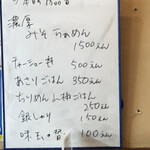 濃厚
みそ らぁめん
1500えん
チャーシュー増 500えん
あさりごはん 350えん
ちりめん山椒ごはん
250えん
銀しゃり 150えん
味玉 100えん